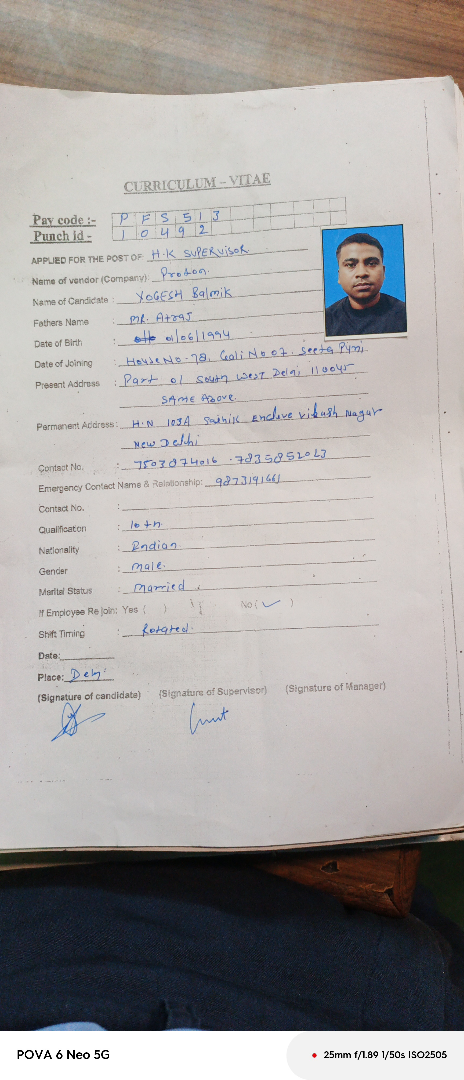 CURRICULUM – VITAE
Pay code :- P F S 5 1 3
Punch id - 1 0 4 9 2
APPLIED FOR THE POST OF H.K SUPERVISOR
Name of vendor (Company):
Name of Candidate : YOGESH Balmik
Fathers Name : MR.
Date of Birth : 01/06/1994
Date of Joining : House No-78, Gali No 07, Seeta Puri
Present Address : Part 01 South West Delhi 110045
SAME Above
Permanent Address : H.N 103A Enclave Vikash Nagar
New Delhi
Contact No. : 7503874016 . 7835852023
Emergency Contact Name & Relationship: 9873191661
Contact No. :
Qualification : 10th
Nationality : Indian
Gender : Male.
Marital Status : Married .
If Employee Rejoin: Yes ( ) No ( ✓ )
Shift Timing : Rotated.
Date:
Place: Delhi
(Signature of candidate) (Signature of Supervisor) (Signature of Manager)
POVA 6 Neo 5G
25mm f/1.89 1/50s ISO2505